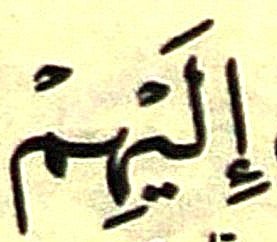 إِلَيْهِمْ